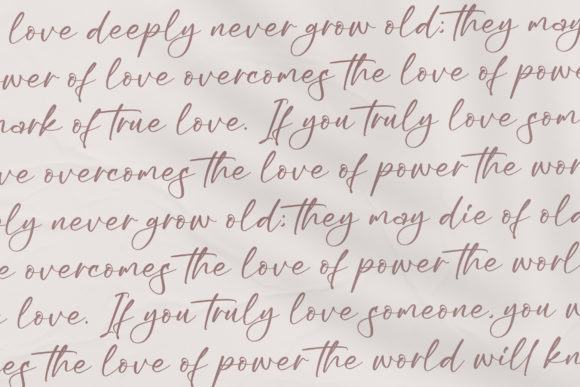 love deeply never grow old; they may
ower of love overcomes the love of powe
mark of true love. If you truly love som
ve overcomes the love of power the wor
ply never grow old; they may die of old
e overcomes the love of power the worl
love. If you truly love someone, you w
es the love of power the world will kn